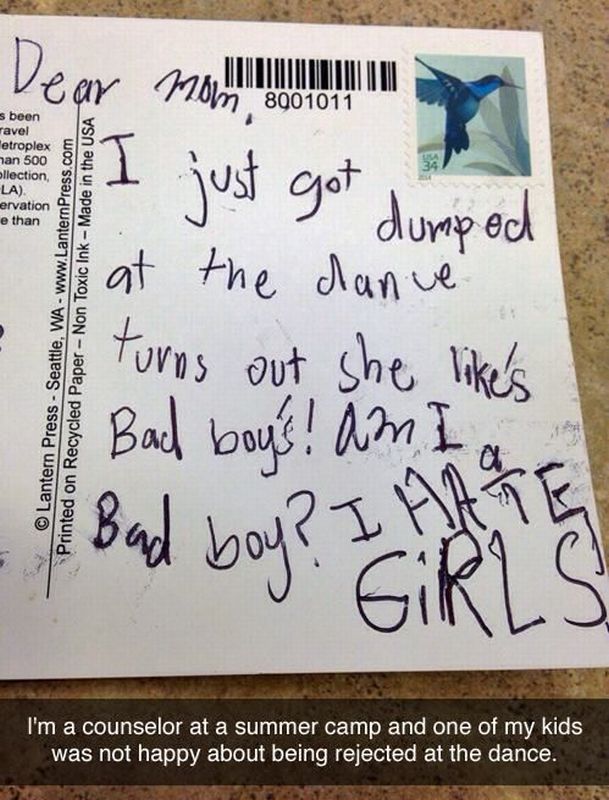 Dear mom,
8001011
USA
34
s been
ravel
etroplex
nan 500
ollection,
LA).
ervation
e than
© Lantern Press - Seattle, WA - www.LanternPress.com
Printed on Recycled Paper – Non Toxic Ink – Made in the USA
I just got
dumped
at the dance
turns out she like's
Bad boy's! Am I a
Bad boy? I HATE
GiRLS
I'm a counselor at a summer camp and one of my kids
was not happy about being rejected at the dance.